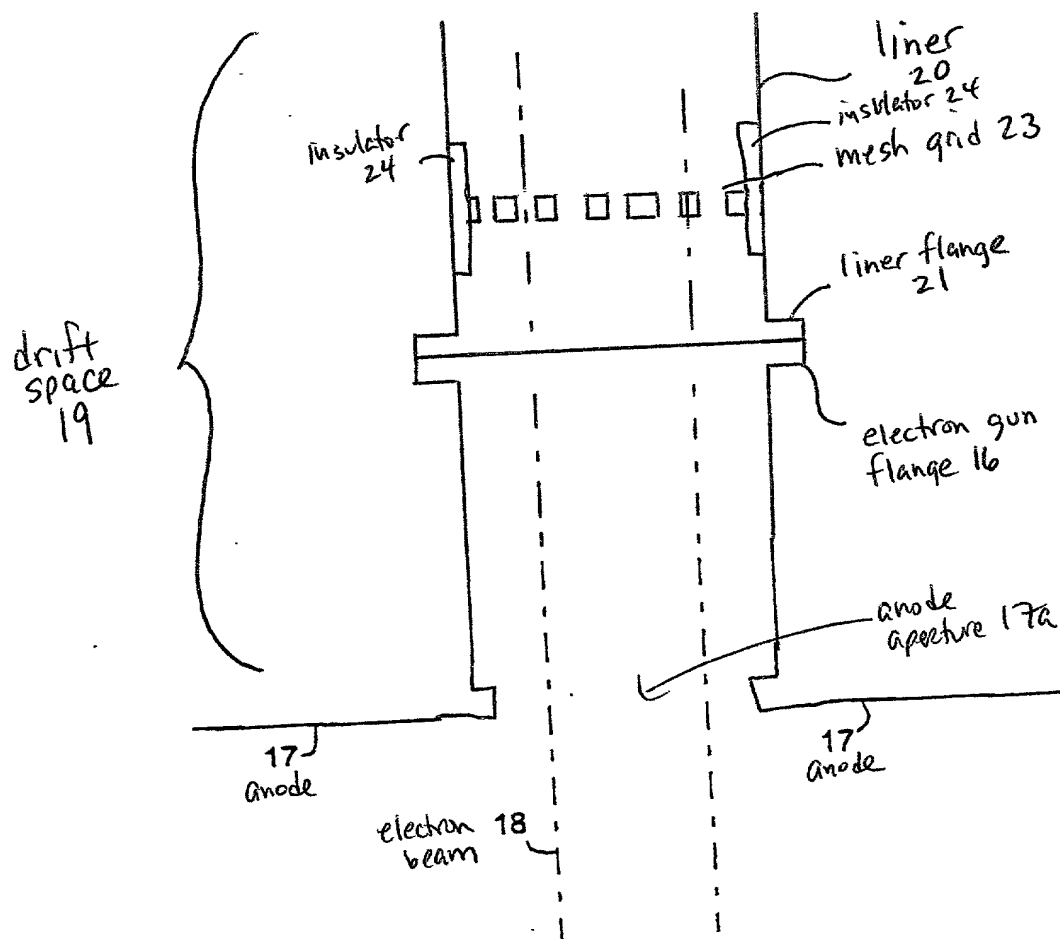 liner
20
insulator 24
mesh grid 23
insulator
24
liner flange
21
drift
space
19
electron gun
flange 16
anode
aperture 17a
17
anode
17
anode
electron 18
beam